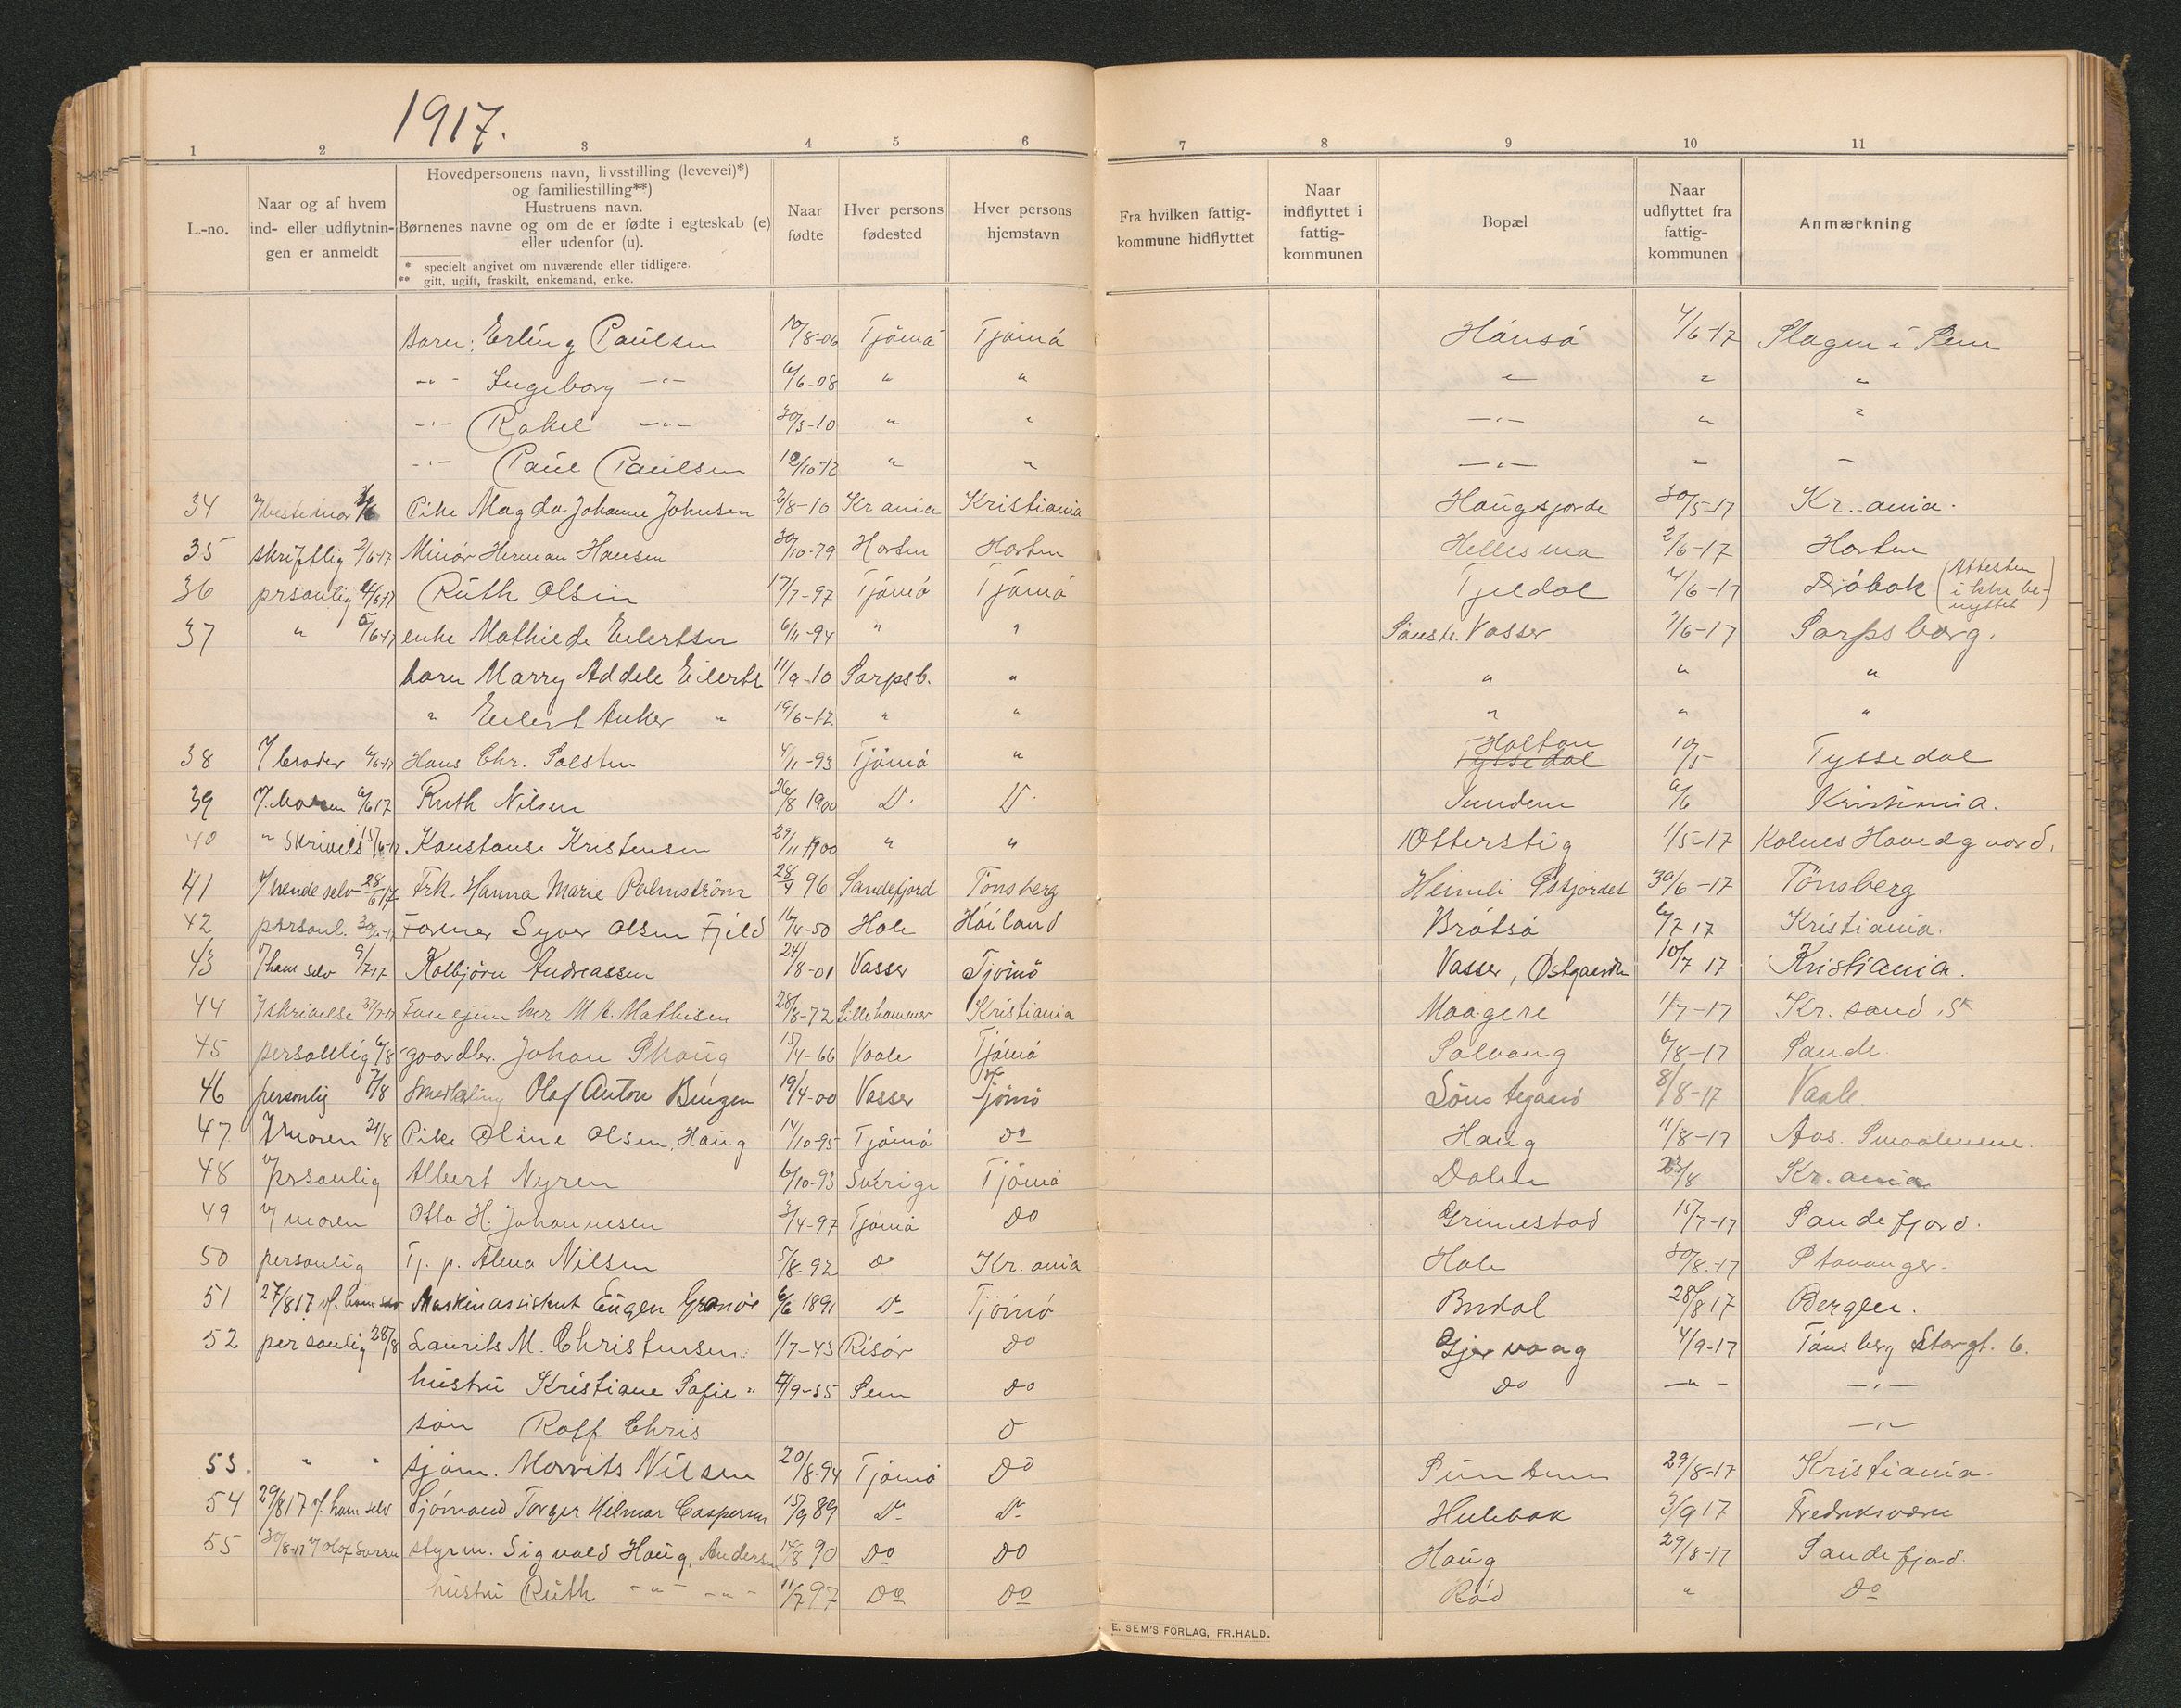 1917.
1 2 3 4 5 6 7 8 9 10 11
L.-no.
Naar og af hvem ind- eller udflytningen er anmeldt
Hovedpersonens navn, livsstilling (levevei)*)
og familiestilling**)
Hustruens navn.
Børnenes navne og om de er fødte i egteskab (e)
eller udenfor (u).
* specielt angivet om nuværende eller tidligere.
** gift, ugift, fraskilt, enkemand, enke.
Naar fødte
Hver persons fødested
Hver persons hjemstavn
Fra hvilken fattigkommune hidflyttet
Naar indflyttet i fattigkommunen
Bopæl
Naar udflyttet fra fattigkommunen
Anmærkning
Barn: Erling Paulsen 10/8-06 Tjømø Tjømø Hønsø 4/6-17 Slagen i Sem
-"- Ingeborg -"- 6/6-08 " " " " "
-"- Rakel -"- 30/3-10 " " -"- " "
-"- Paul Paulsen 10/10-12 " " -"- " -
34 v/bestemor Pike Magda Johanne Johnsen 2/8-10 Kr ania Kristiania Haugsjorde 30/5-17 Kr. ania.
35 skriftlig 2/6-17 Minør Herman Hansen 30/10-79 Horten Horten Hellesmo 2/6-17 Horten
36 prsonlig 4/6 17 Ruth Olsen 17/7-97 Tjømø Tjømø Tjeldal 4/6-17 Drøbak (Attesten ikke benyttet)
37 " 5/6-17 enke Mathilde Eilertsen 6/11-94 " " Sønste. Vasser 7/6-17 Sarpsborg.
barn Marry Addele Eilerts 11/9-10 Sarpsb. " " " "
" Eilert Anker " 19/6-12 " " " " "
38 v/ broder 6/6-17 Hans Chr. Salsten 4/11-93 Tjømø " Holtan Tyssedal 10/5 Tyssedal
39 v/. Moren 6/6 17 Ruth Nilsen 26/8 1900 D. D. Sundene 6/6 Kristiania.
40 " Skrivels 15/6-17 Konstanse Kristensen 29/11 1900 " " Otterstig 1/5-17 Kolnes Hovedgaard.
41 v/ hende selv 28/6 17 Frk. Hanna Marie Palmström 28/7 96 Sandefjord Tönsberg Heimli Østjordet 30/6-17 Tönsberg
42 personl. Former Syver Olsen Fjeld 16/4-50 Hole Høiland Brøtsø 6/7 17 Kristiania.
43 v/ ham selv 9/7 17 Kolbjørn Andreassen 24/8-01 Vasser Tjømø Vasser, Østgaarden 10/7 17 Kristiania.
44 v/ skrivelse M. A. Mathisen 28/8-72 Lillehammer Kristiania Maagerø 1/7-17 Kr. sand. S.
45 personlig 6/8 gaardbr. Johan Skaug 15/4-66 Vaale Tjømø Solvang 6/8-17 Sande
46 personlig 7/8 Smedlærling Olaf Anton Bingen 19/4-00 Vasser Tjømø Sønstegaard 8/8-17 Vaale
47 v/ Moren 21/8 Pike Oline Olsen, Haug 14/10-95 Tjømø Do Haug 11/8-17 Aas. Smaalenene.
48 v/ prsonlig Albert Nyren 6/10-93 Sverige Tjømø Dalen 23/8 Kr. ania
49 v/ moren Otto H. Johannesen 3/4-97 Tjømø Do Grimestad 15/7-17 Sandefjord.
50 personlig Tj. p. Alma Nilsen 5/8-92 Do Kr. ania Hole 30/8-17 Stavanger.
51 27/8 17 v/. ham selv Maskinassistent Eugen Granøe 6/6 1891 Do Tjømø Budal 28/8 17 Bergen.
52 personlig 28/8 Laurits M. Christensen 1/7-43 Risør Do Gjervaag 4/9-17 Tønsberg Storgt. 6.
hustru Kristiane Sofie " 4/9-55 Sem Do Do -"- -"-
søn Rolf Chris Do -"-
53. " " sjøm. Morrits Nilsen 20/8-94 Tjømø Do Sundene 29/8-17 Kristiania.
54 29/8 17 v/. ham selv Sjömand Torger Hilmar Caspersen 15/9 89 Do Do Hulebak 3/9 17 Fredriksværn
55 30/8-17 v/ Olof styrm. Sigvald Haug, Anders 14/8 90 Do Do Haug 29/8-17 Sandefjord.
hustru Ruth -"- -"- 11/7 97 Do Do Rød " Do
E. SEM'S FORLAG, FR.HALD.